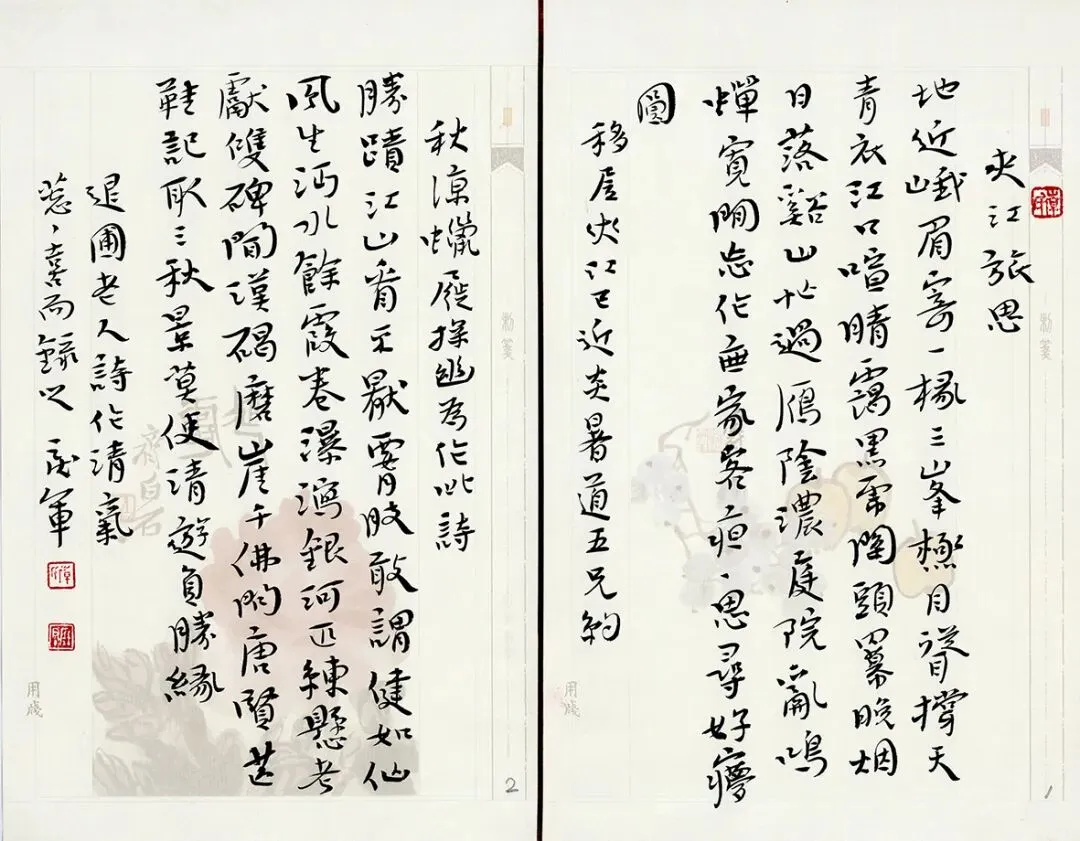 夾江旅思
地近峨眉寄一椽三峯極目聳撐天
青衣江口喧晴靄黑頭羃晚烟
日落谿山忙過雁陰濃庭院亂鳴
蟬寬閒忘作無家客思尋好夢
圓
移居夾江已近炎暑道五兄約
秋凉蠟屐探幽為作此詩
勝蹟江山看不厭腰肢敢謂健如仙
風生沔水餘霞卷瀑瀉銀河匹練懸考
獻雙碑間漢碣磨崖千佛閱唐賢芒
鞋記取三秋景莫使清遊負勝緣
退圃老人詩作清氣
喜而錄之軍
用牋
用牋
1
2